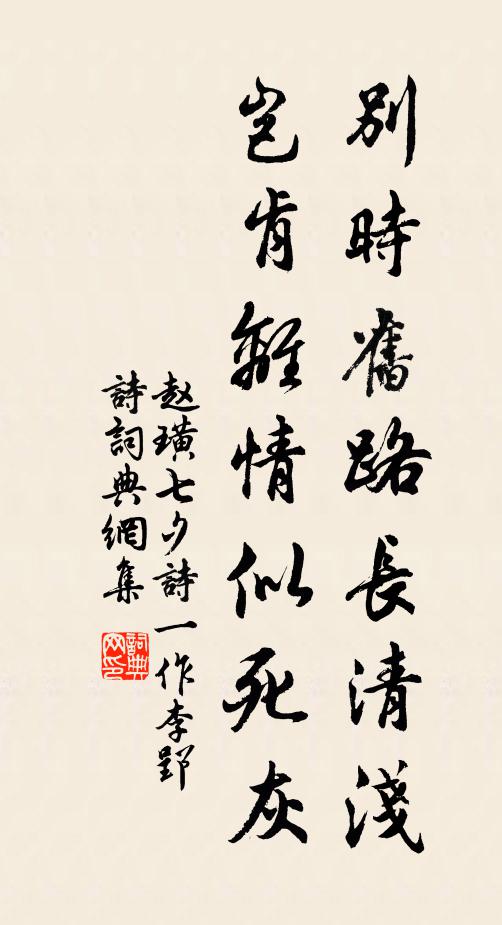 別時舊路長清淺
豈肯離情似死灰
赵璜七夕詩一作李郢
詩詞典網集
詞典网印